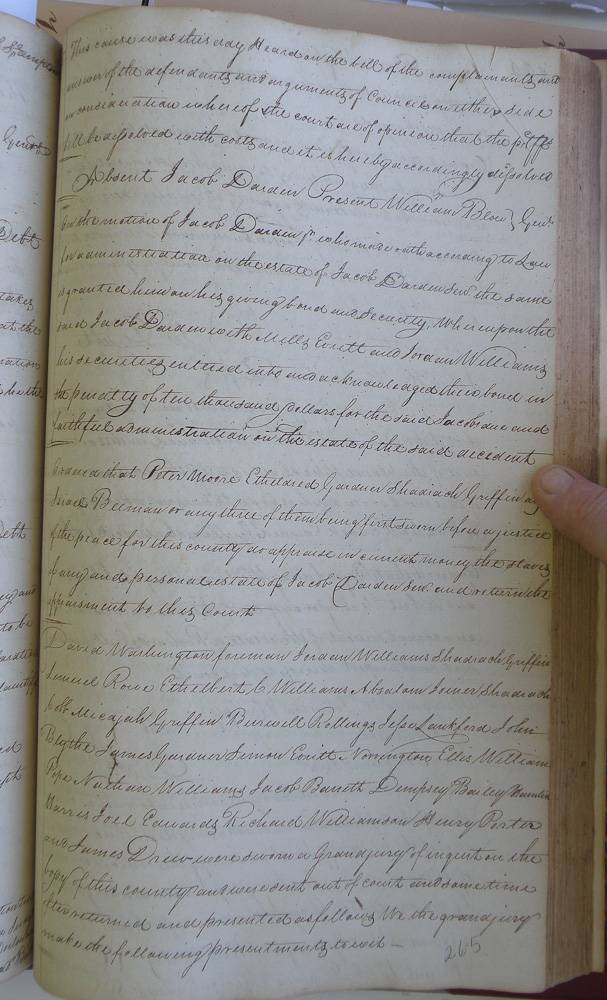 This cause was this day Heard on the bill of the complainants and
answer of the defendants and arguments of Councel on either side
on consideration whereof the court are of opinion that the pltffs
bill be desolved with costs and it is hereby accordingly desolved
Absent Jacob Darden Present William Blow Gent.
On the motion of Jacob Darden jr. who made oath according to Law
for administration on the estate of Jacob Darden Senr. the same
is granted him on his giving bond and security, Whereupon the
said Jacob Darden with Mills Everitt and Jordan Williams
his securities entered into and acknowledged their bond in
the penalty of ten thousand dollars for the said Jacobs due and
faithful administration on the estate of the said decedent
Ordered that Peter Moore Etheldred Gardner Shadrach Griffin
Israel Beeman or any three of them being first sworn before a justice
of the peace for this county do appraise in current money the slaves
if any and personal estate of Jacob Darden Senr. and return the
appraisment to this Court
David Washington foreman Jordan Williams Shadrach Griffin
Lemuel Rowe Ethelbert C Williams Absalom Joiner Shadrach
Cobb Micajah Griffin Burwell Rollings Jesse Lankford John
Blythe James Gardner Simon Everitt Norrington Ellis William
Pope Nathan Williams Jacob Barrett Dempsey Bailey
Harris Joel Edwards Richard Williamson Henry Porter
and James Drew were sworn a Grandjury of inquest on the
body of this county and were sent out of court and sometime
after returned and presented as follows We the grandjury
make the following presentments to wit —
265
Debt
Debt